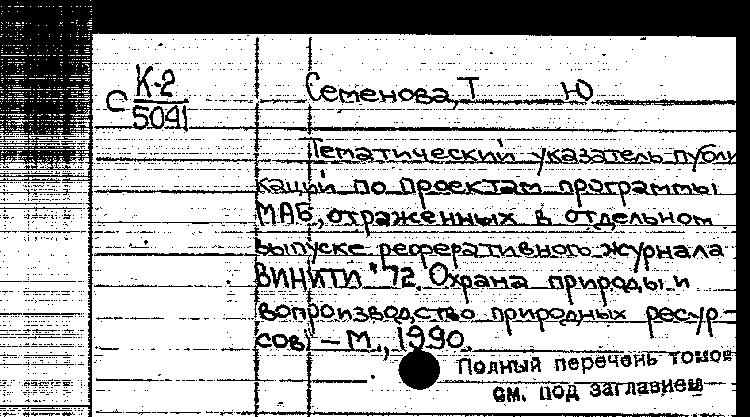 С К-2
5041
Семенова, Т Ю
Тематический указатель публи
каций по проектам программы
МАБ, отраженных в отдельном
выпуске реферативного журнала
ВИНИТИ "72. Охрана природы и
вопроизводство природных ресур-
сов. – М., 1990.
Полный перечень томов
см. под заглавием